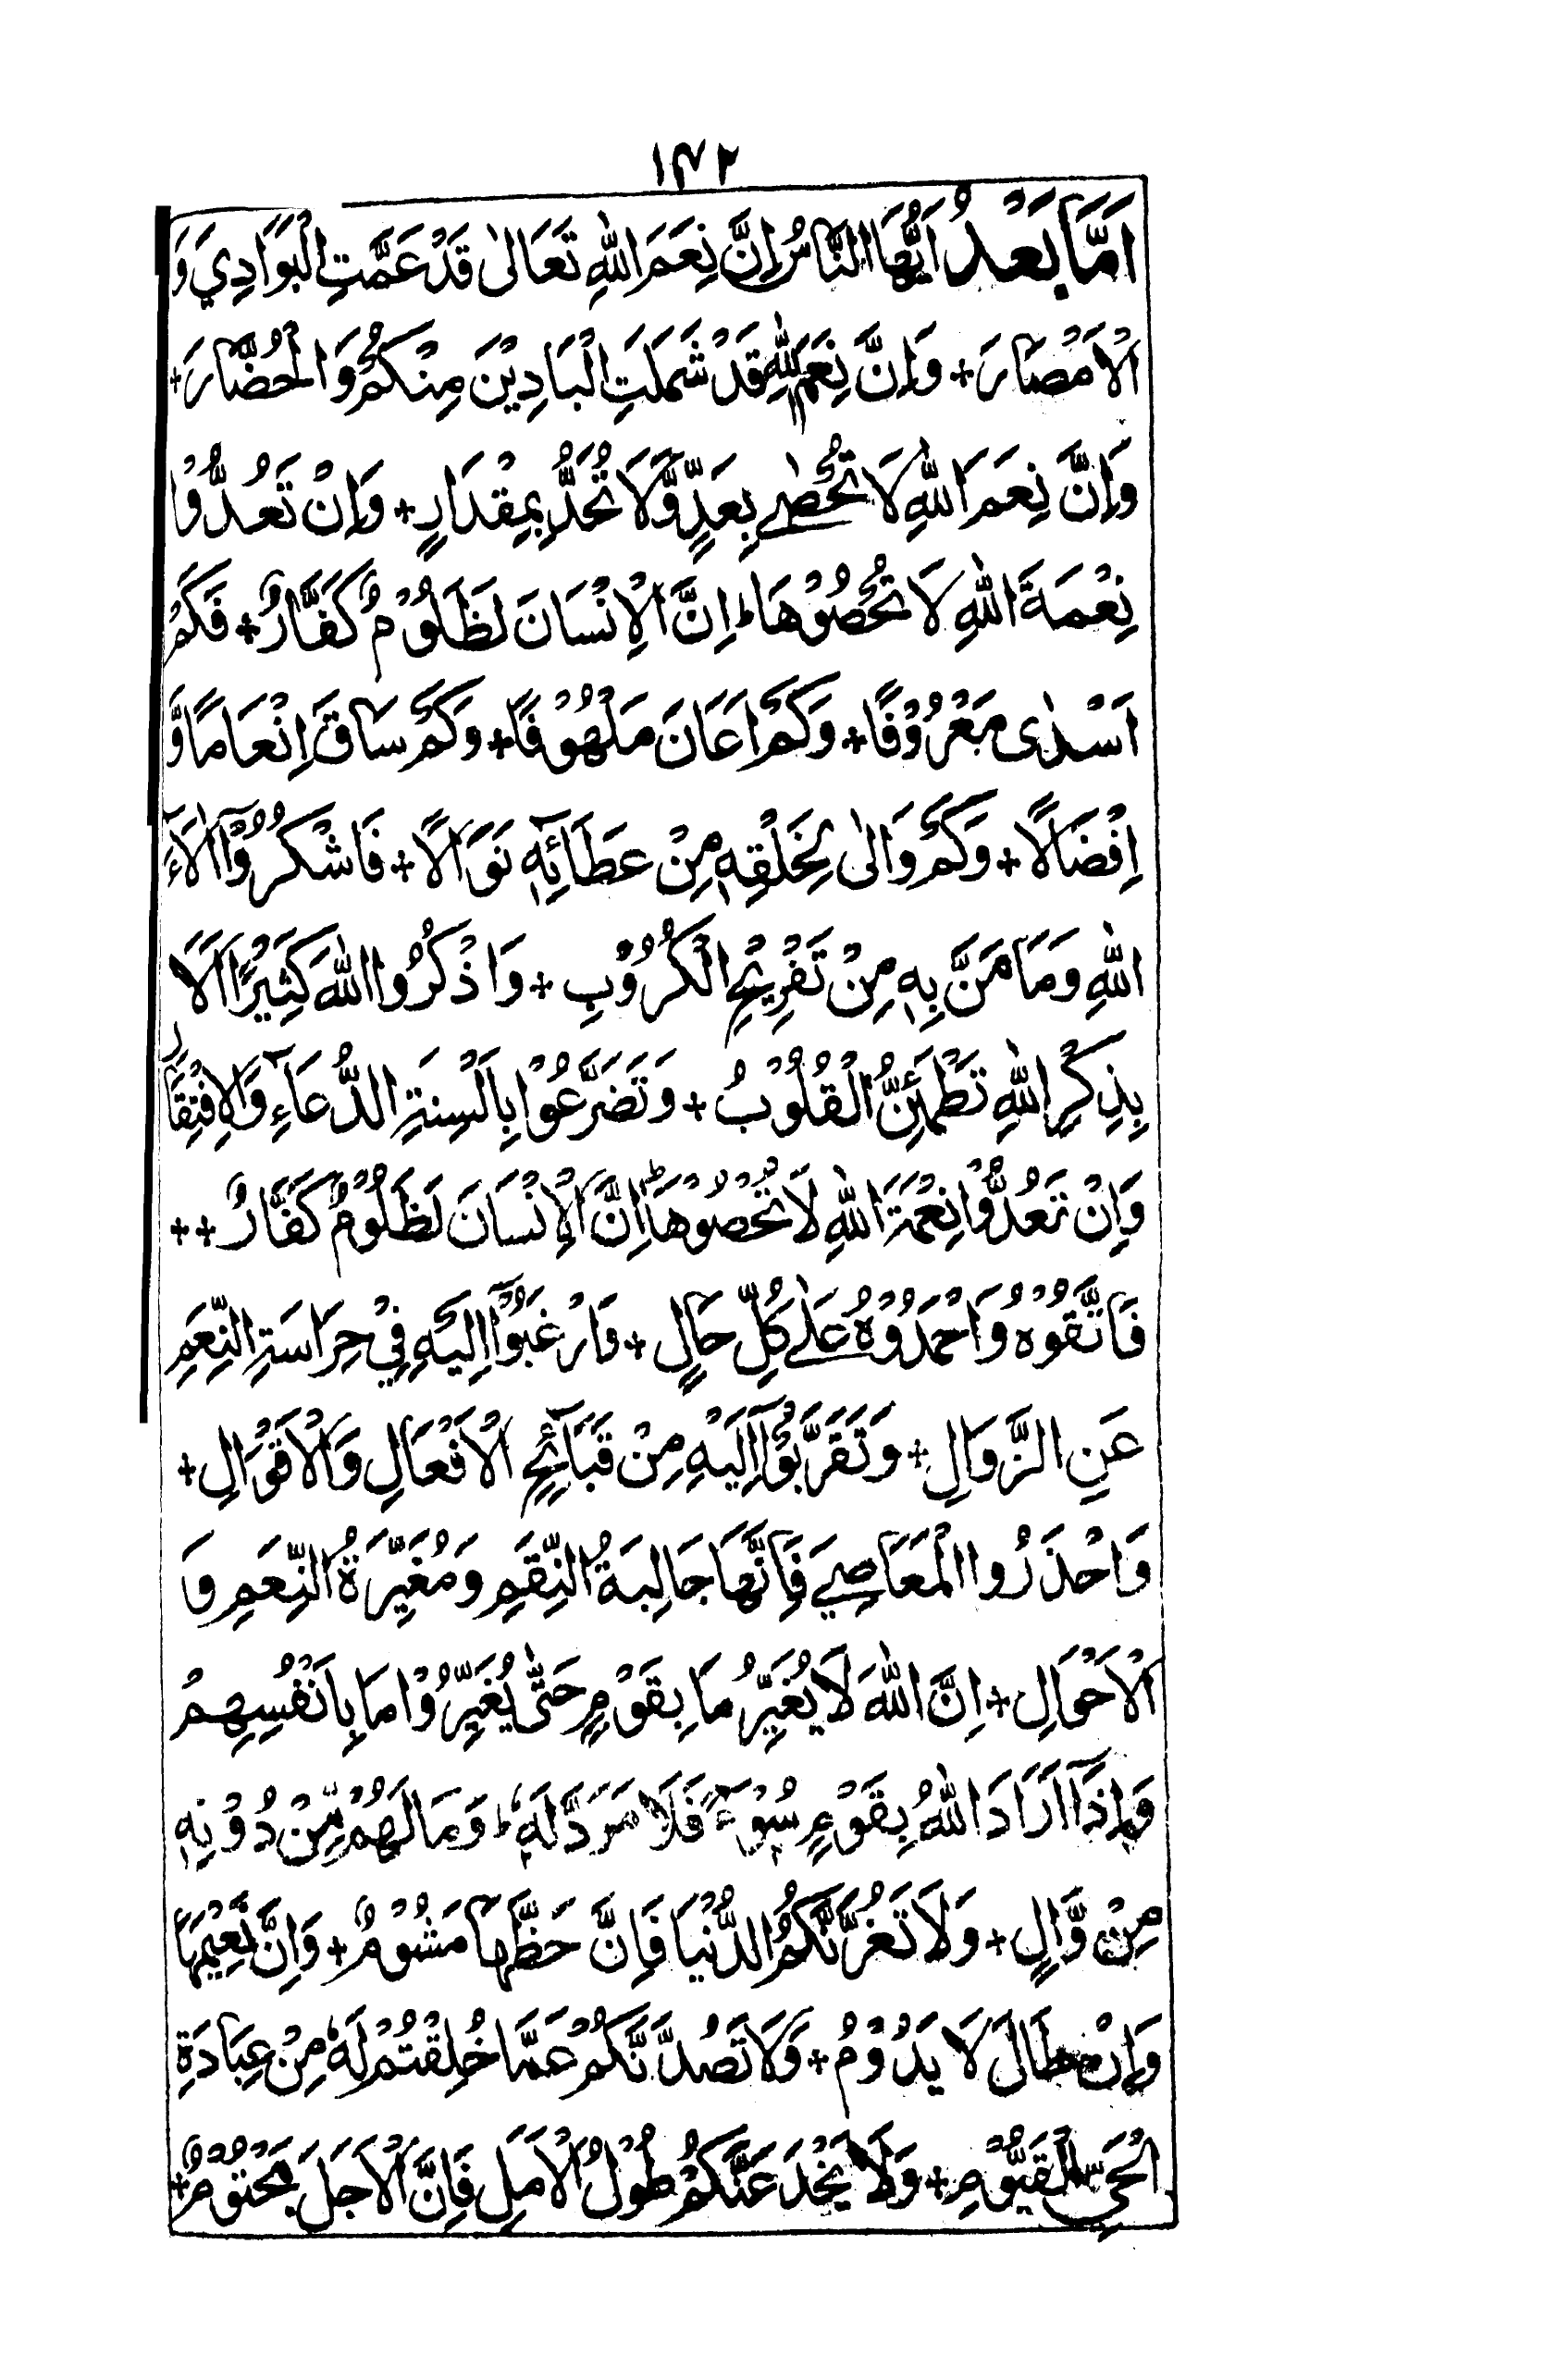 ۱۴۲
اَمَّا بَعْدُ اَيُّهَا النَّاسُ اِنَّ نِعَمَ اللّٰهِ تَعَالٰى قَدْ عَمَّتِ الْبَوَادِيَ وَ
الْاَمْصَارَ + وَاِنَّ نِعَمَ اللّٰهِ قَدْ شَمَلَتِ الْبَادِيْنَ مِنْكُمْ وَالْحُضَّارَ +
وَاِنَّ نِعَمَ اللّٰهِ لَا تُحْصٰے بِعَدٍّ وَّلَا تُحَدُّ بِمِقْدَارٍ + وَاِنْ تَعُدُّوْا
نِعْمَةَ اللّٰهِ لَا تُحْصُوْهَا ؕ اِنَّ الْاِنْسَانَ لَظَلُوْمٌ كَفَّارٌ + فَكَمْ
اَسْدٰى مَعْرُوْفًا + وَكَمْ اَعَانَ مَلْهُوْفًا + وَكَمْ سَاقَ اِنْعَامًا وَّ
اِفْضَالًا + وَكَمْ وَالٰى لِخَلْقِهٖ مِنْ عَطَائِهٖ نَوَالًا + فَاشْكُرُوْا اٰلَاءَ
اللّٰهِ وَمَا مَنَّ بِهٖ مِنْ تَفْرِيْجِ الْكُرُوْبِ + وَاذْكُرُوا اللّٰهَ كَثِيْرًا اَلَا
بِذِكْرِ اللّٰهِ تَطْمَئِنُّ الْقُلُوْبُ + وَتَضَرَّعُوْا بِاَلْسِنَةِ الدُّعَآءِ وَالْاِفْتِقَارِ
وَاِنْ تَعُدُّوْا نِعْمَةَ اللّٰهِ لَا تُحْصُوْهَا ؕ اِنَّ الْاِنْسَانَ لَظَلُوْمٌ كَفَّارٌ ++
فَاتَّقُوْهُ وَاحْمَدُوْهُ عَلٰے كُلِّ حَالٍ + وَارْغَبُوْٓا اِلَيْهِ فِيْ حِرَاسَةِ النِّعَمِ
عَنِ الزَّوَالِ + وَتَقَرَّبُوْٓا اِلَيْهِ مِنْ قَبَآئِحِ الْاَفْعَالِ وَالْاَقْوَالِ +
وَاحْذَرُوا الْمَعَاصِيَ فَاِنَّهَا جَالِبَةُ النِّقَمِ وَمُغَيِّرَةُ النِّعَمِ وَ
الْاَحْوَالِ + اِنَّ اللّٰهَ لَا يُغَيِّرُ مَا بِقَوْمٍ حَتّٰى يُغَيِّرُوْا مَا بِاَنْفُسِهِمْ
وَاِذَآ اَرَادَ اللّٰهُ بِقَوْمٍ سُوْٓءً فَلَا مَرَدَّ لَهٗ ؕ وَمَا لَهُمْ مِّنْ دُوْنِهٖ
مِنْ وَّالٍ + وَلَا تَغُرَّنَّكُمُ الدُّنْيَا فَاِنَّ حَظَّهَا مَشُوْمٌ + وَاِنَّ نَعِيْمَهَا
وَاِنْ طَالَ لَا يَدُوْمُ + وَلَا تَصُدَّنَّكُمْ عَمَّا خُلِقْتُمْ لَهٗ مِنْ عِبَادَةِ
الْحَيِّ الْقَيُّوْمِ + وَلَا يَخْدَعَنَّكُمْ طُوْلُ الْاَمَلِ فَاِنَّ الْاَجَلَ مَحْتُوْمٌ +